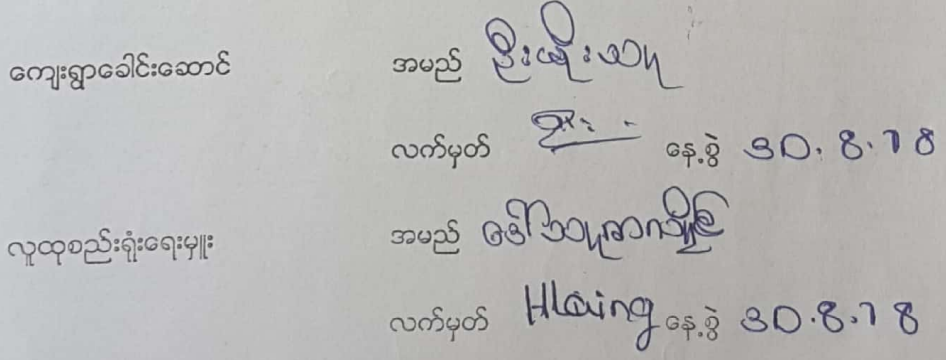 ကျေးရွာခေါင်းဆောင် အမည် ဦးဖိုးသာ
လက်မှတ် နေ့စွဲ 30.8.18
လူထုစည်းရုံးရေးမှူး အမည် ဒေါ်
လက်မှတ် Hlaing နေ့စွဲ 30.8.18